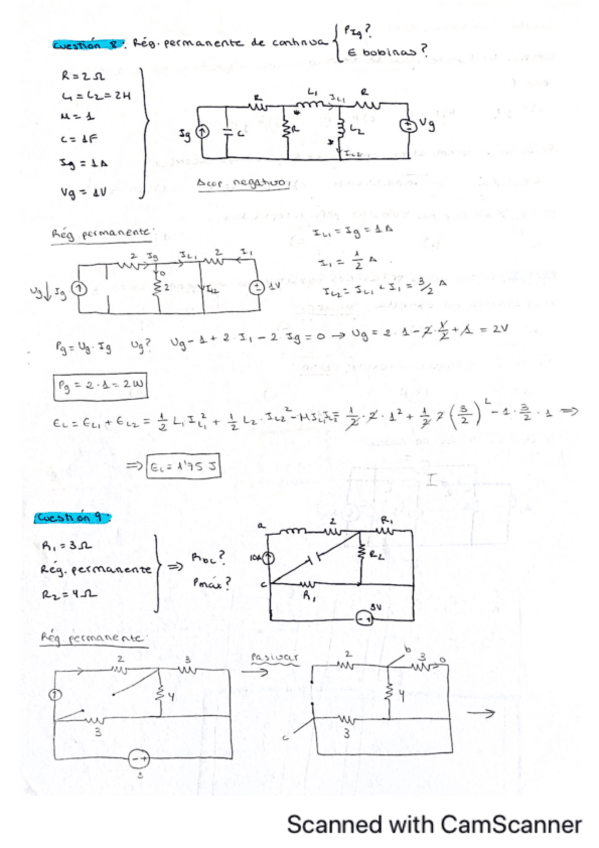 Cuestión 8: Rég. permanente de continua { PIg?
E bobinas?
R = 2Ω
L1 = L2 = 2H
M = 1
C = 1F
Ig = 1A
Vg = 1V
R L1 IL1 R
Ig C R L2 Vg
IL2
Acop. negativo,
Rég permanente:
2 Ig IL1 2 I1
Ug Ig 0 2 IL2 1V
IL1 = Ig = 1A
I1 = 1/2 A.
IL2 = IL1 + I1 = 3/2 A
Pg = Ug · Ig Ug? Ug - 1 + 2·I1 - 2·Ig = 0 → Ug = 2·1 - 2·1/2 + 1 = 2V
Pg = 2·1 = 2W
EL = EL1 + EL2 = 1/2 L1 IL1² + 1/2 L2·IL2² - M IL1 IL2 = 1/2·2·1² + 1/2 2 (3/2)² - 1·3/2·1 ⇒
⇒ EL = 1'75 J
Cuestión 9:
R1 = 3Ω
Rég. permanente
R2 = 4Ω
⇒ Rbc?
Pmáx?
a 2 R1
10A R2
c R1
8V
Rég permanente:
2 3
4
3
Pasivar
2 b 3
4
c 3
Scanned with CamScanner